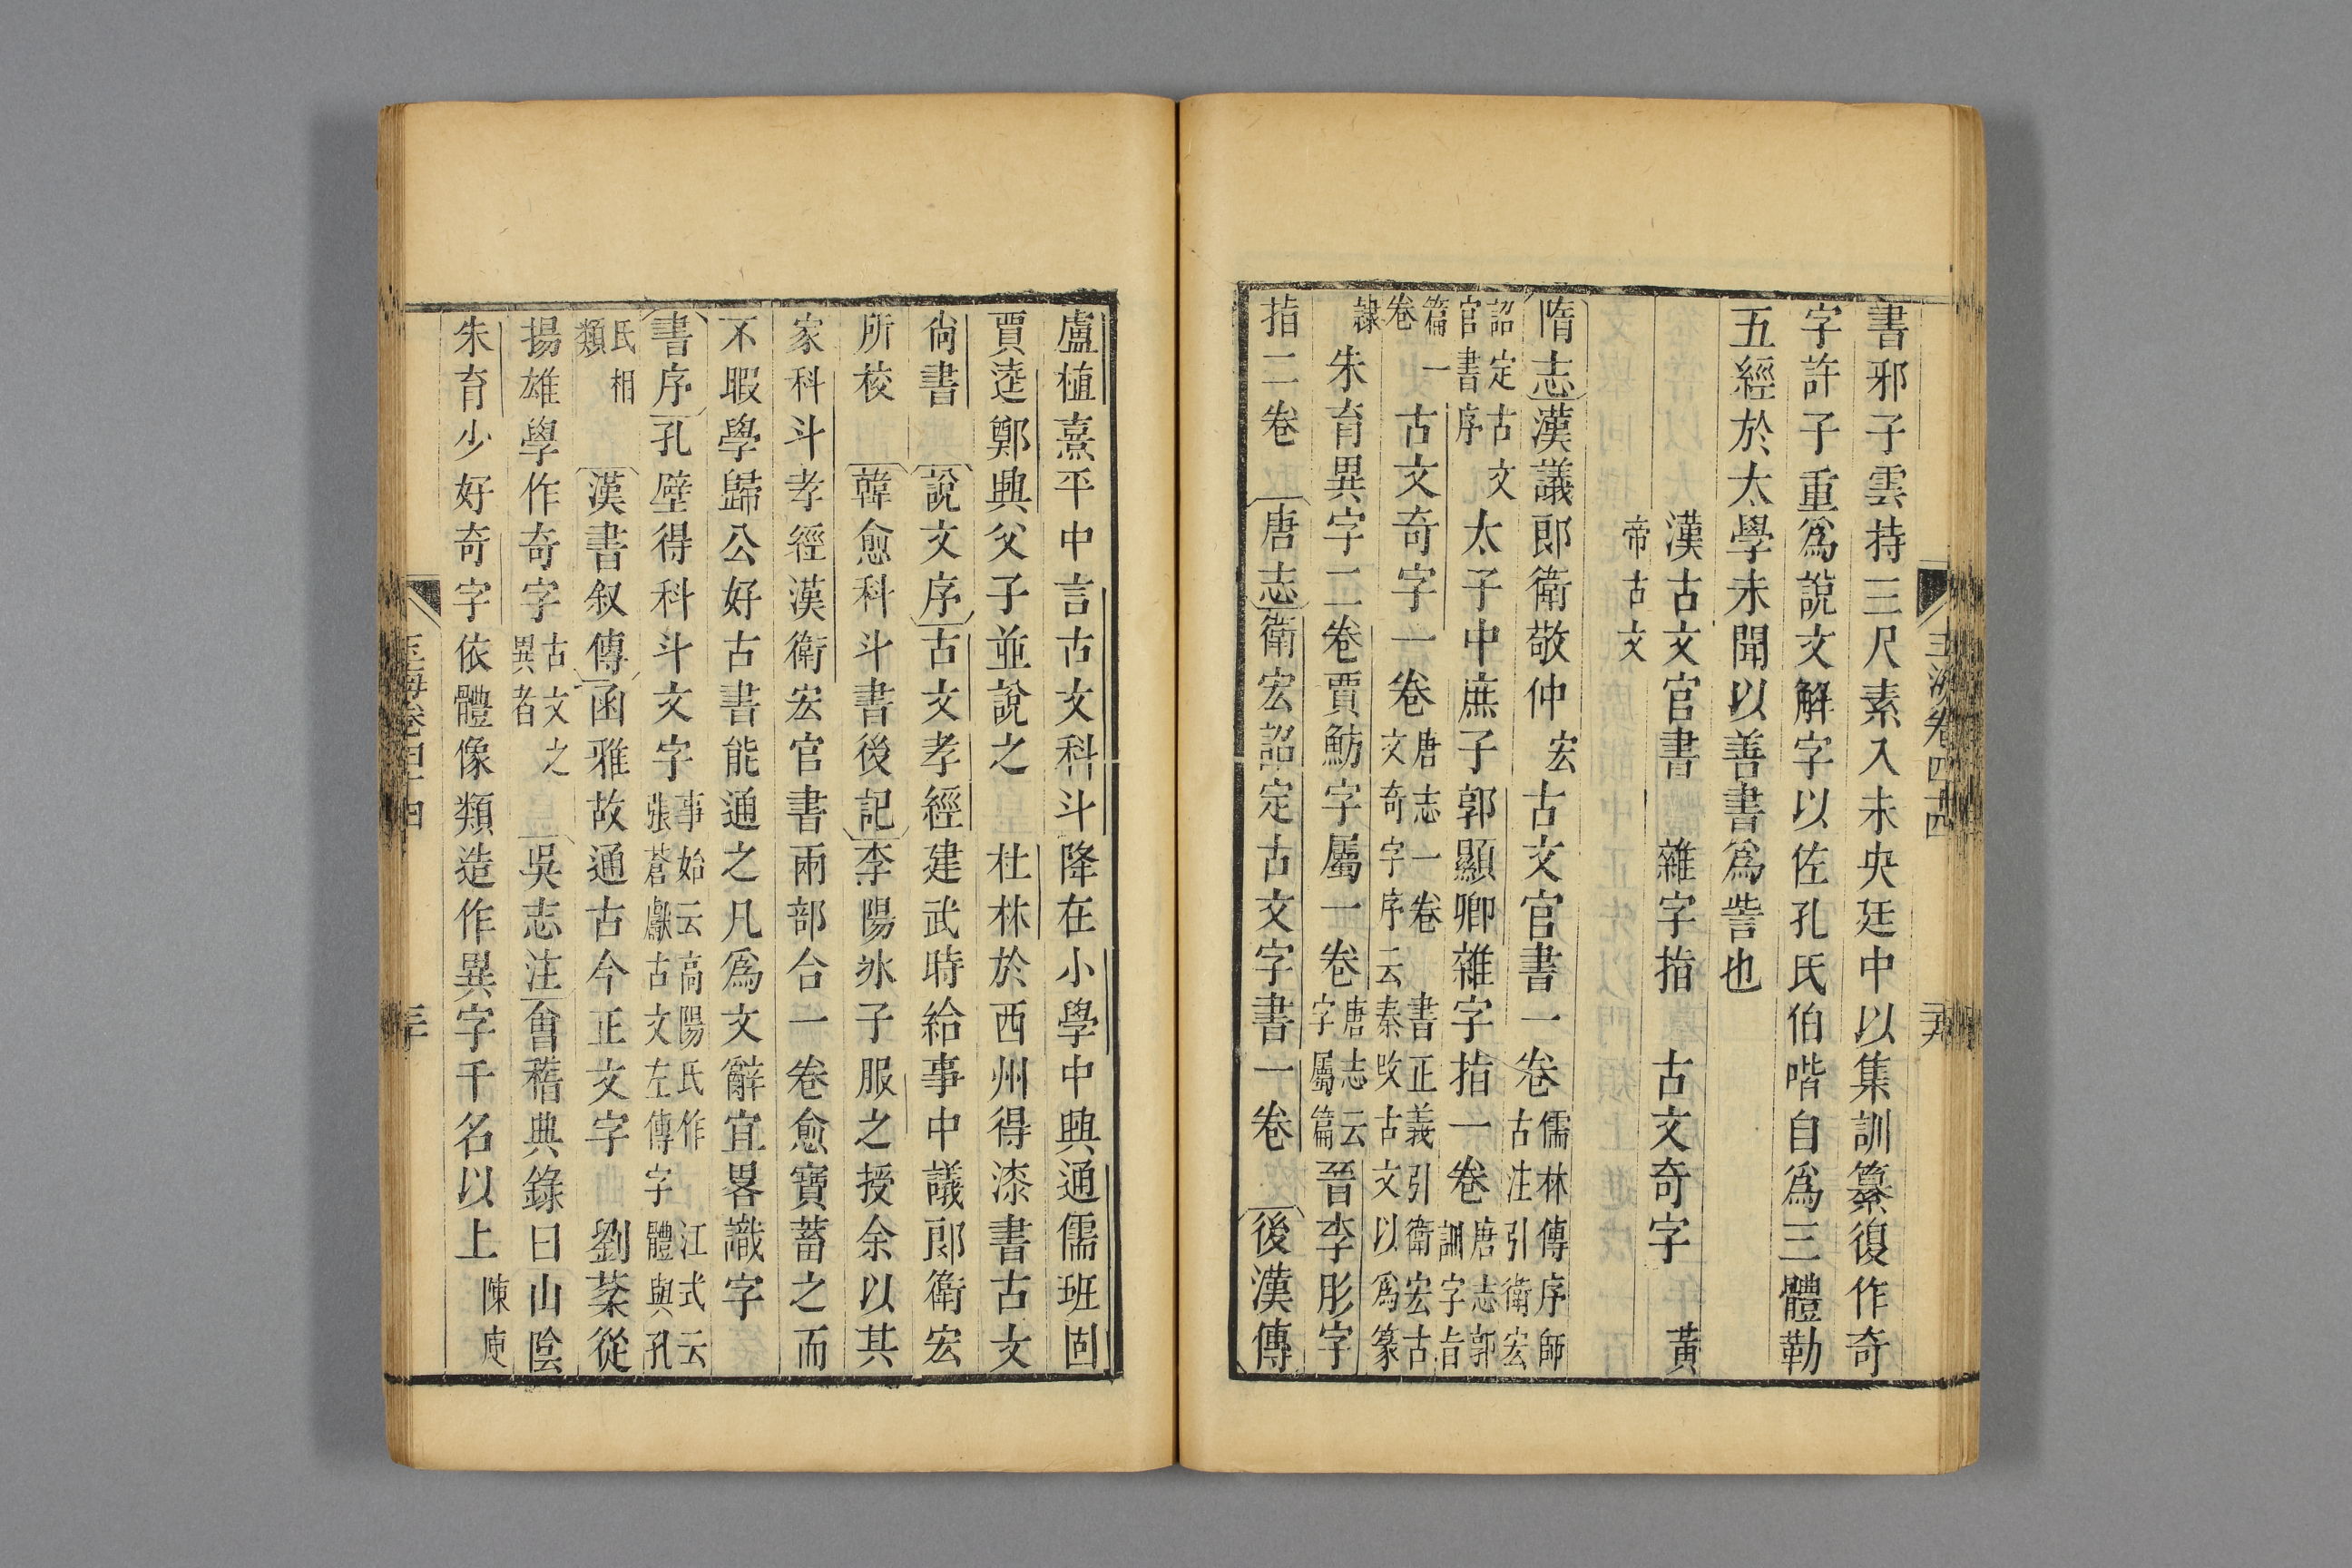 玉海卷四十四
書邪子雲持三尺素入未央廷中以集訓纂復作奇
字許子重爲說文解字以佐孔氏伯喈自爲三體勒
五經於太學未聞以善書爲訾也
漢古文官書 雜字指 古文奇字 黃
帝古文
隋志漢議郎衛敬仲宏古文官書一卷儒林傳序師古注引衛宏
詔定古文官書序太子中庶子郭顯卿雜字指一卷唐志郭訓字旨
篇一卷古文奇字一卷唐志一卷文奇字序云書正義引衛宏古秦改古文以爲篆
隸朱育異字二卷賈魴字屬一卷唐志云字屬篇晉李彤字
指二卷唐志衛宏詔定古文字書一卷後漢傳
盧植熹平中言古文科斗降在小學中興通儒班固
賈逵鄭興父子並說之 杜林於西州得漆書古文
尚書 說文序古文孝經建武時給事中議郎衛宏
所校 韓愈科斗書後記李陽冰子服之授余以其
家科斗孝經漢衛宏官書兩部合一卷愈寶蓄之而
不暇學歸公好古書能通之凡爲文辭宜畧識字
書序孔壁得科斗文字事始云高陽氏作張蒼獻古文左傳字江式云體與孔
氏相類 漢書叙傳函雅故通古今正文字 劉棻從
揚雄學作奇字古文之異者 吳志注會稽典錄曰山陰
朱育少好奇字依體像類造作異字千名以上陳庾
玉海卷四十四
三十